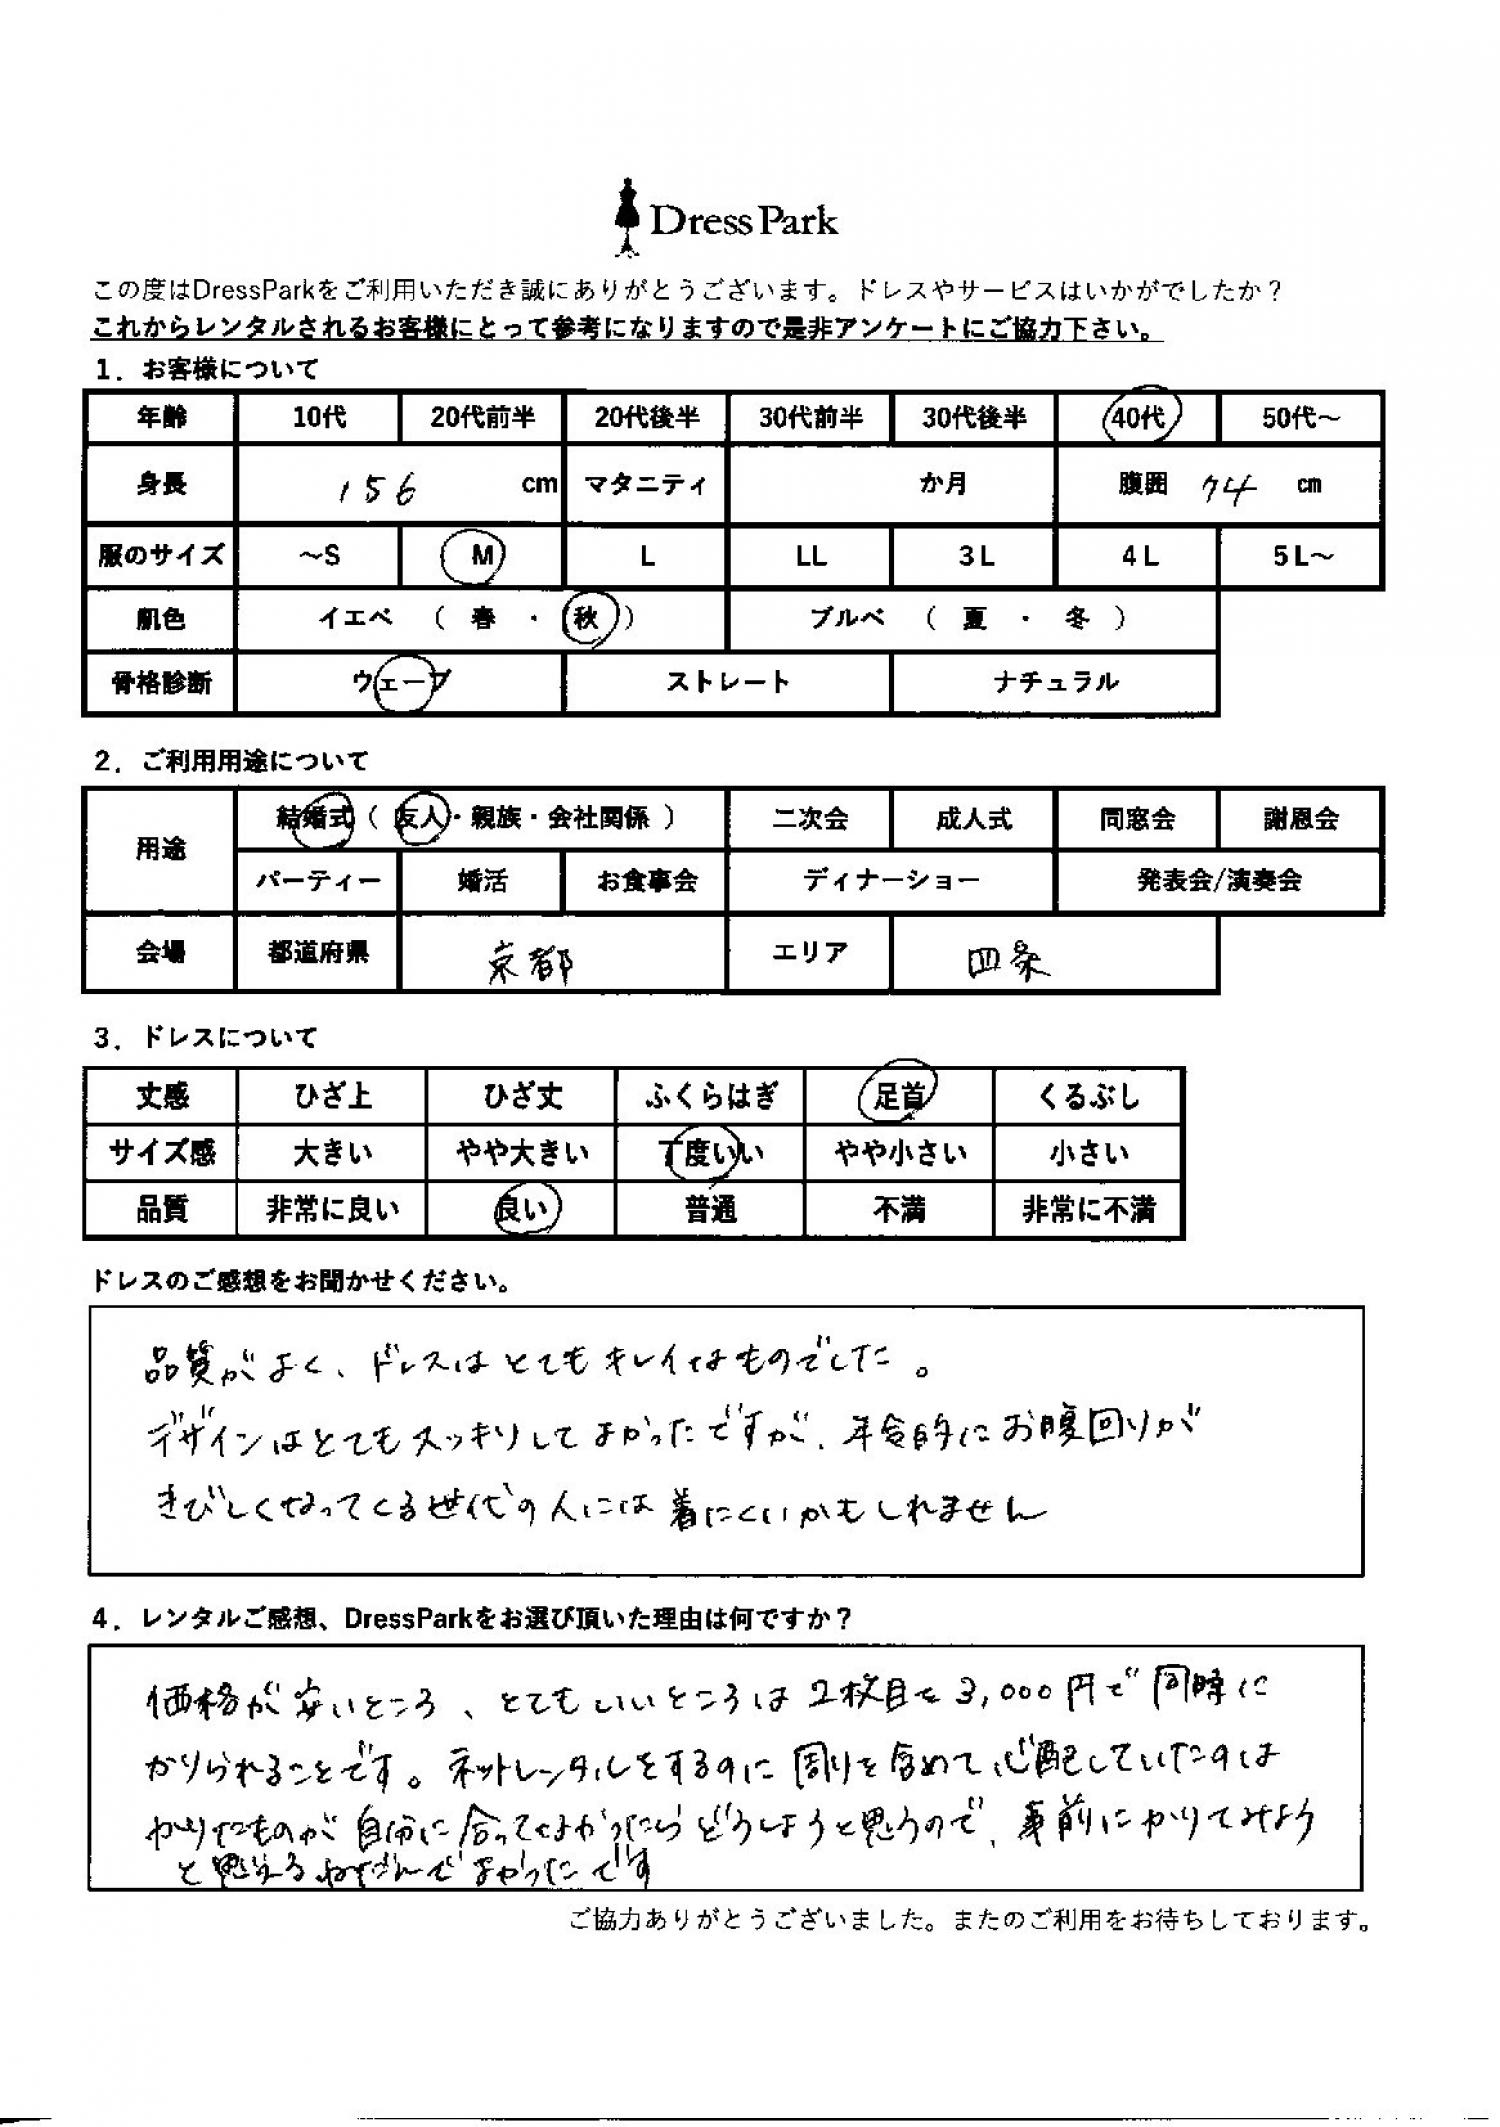 Dress Park
この度はDressParkをご利用いただき誠にありがとうございます。ドレスやサービスはいかがでしたか？
これからレンタルされるお客様にとって参考になりますので是非アンケートにご協力下さい。
1．お客様について
年齢 10代 20代前半 20代後半 30代前半 30代後半 40代 50代～
身長 156 cm マタニティ か月 腹囲 74 cm
服のサイズ ～S M L LL 3L 4L 5L～
肌色 イエベ （ 春 ・ 秋 ） ブルベ （ 夏 ・ 冬 ）
骨格診断 ウェーブ ストレート ナチュラル
2．ご利用用途について
用途 結婚式（ 友人・親族・会社関係 ） 二次会 成人式 同窓会 謝恩会
パーティー 婚活 お食事会 ディナーショー 発表会/演奏会
会場 都道府県 京都 エリア 四条
3．ドレスについて
丈感 ひざ上 ひざ丈 ふくらはぎ 足首 くるぶし
サイズ感 大きい やや大きい 丁度いい やや小さい 小さい
品質 非常に良い 良い 普通 不満 非常に不満
ドレスのご感想をお聞かせください。
品質がよく、ドレスはとてもキレイなものでした。
デザインはとてもスッキリしてよかったですが、年令的にお腹回りが
きびしくなってくる世代の人には着にくいかもしれません
4．レンタルご感想、DressParkをお選び頂いた理由は何ですか？
価格が安いところ、とてもいいところは2枚目を3,000円で同時に
かりられることです。ネットレンタルをするのに周りを含めて心配していたのは
かりたものが自分に合ってなかったらどうしようと思うので、事前にかりてみよう
と思えるねだんでよかったです
ご協力ありがとうございました。またのご利用をお待ちしております。